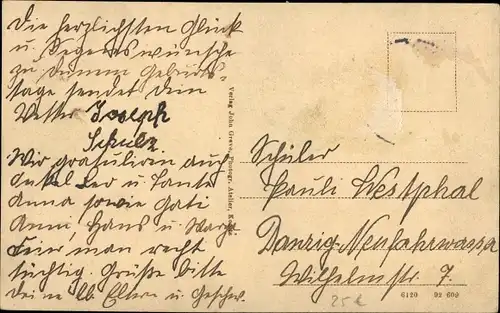 Die herzlichsten Glück
u. Segenswünsche
zu Deinem Geburts-
tage sendet dein
Vetter Joseph
Schulz.
Wir gratuliren auch
Onkel Leo u. Tante
Anna sowie
Anni, Hans u.
Feier man recht
tüchtig. Grüße bitte
deine lb. Eltern u. Geschw.
Verlag John Greve, Photogr. Atelier,
Schüler
Pauli Westphal
Danzig-Neufahrwasser
Wilhelmstr. 7.
25€
6120 92 609